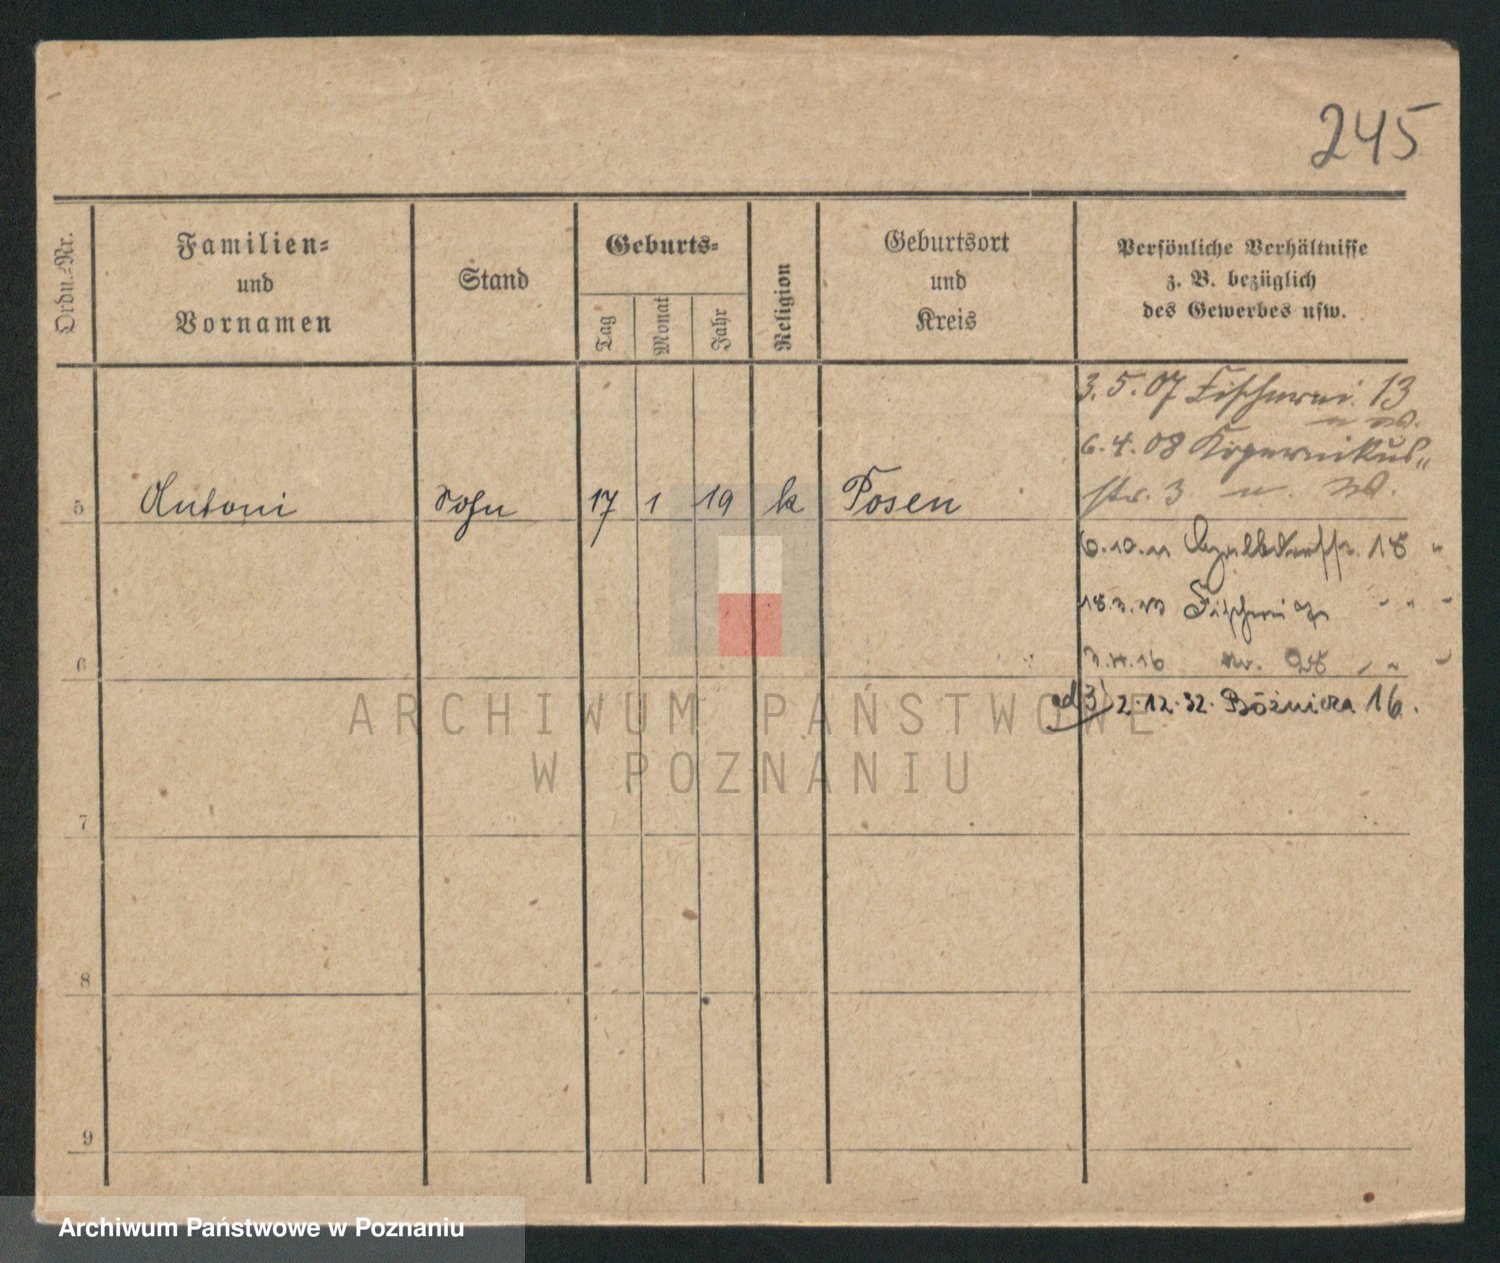 245
Ordn.-Nr.
Familien-
und
Vornamen
Stand
Geburts-
Tag
Monat
Jahr
Religion
Geburtsort
und
Kreis
Persönliche Verhältnisse
z. B. bezüglich
des Gewerbes usw.
3.5.07 Fischerei 13
6.4.08 Kopernikus-
str. 3
5 Antoni Sohn 17 1 19 k Posen
6.10.11 18 "
18.3.13 Fischerei
6
16
ad 3) 2.12.32. Bóżnicza 16.
ARCHIWUM PAŃSTWOWE
W POZNANIU
7
8
9
Archiwum Państwowe w Poznaniu